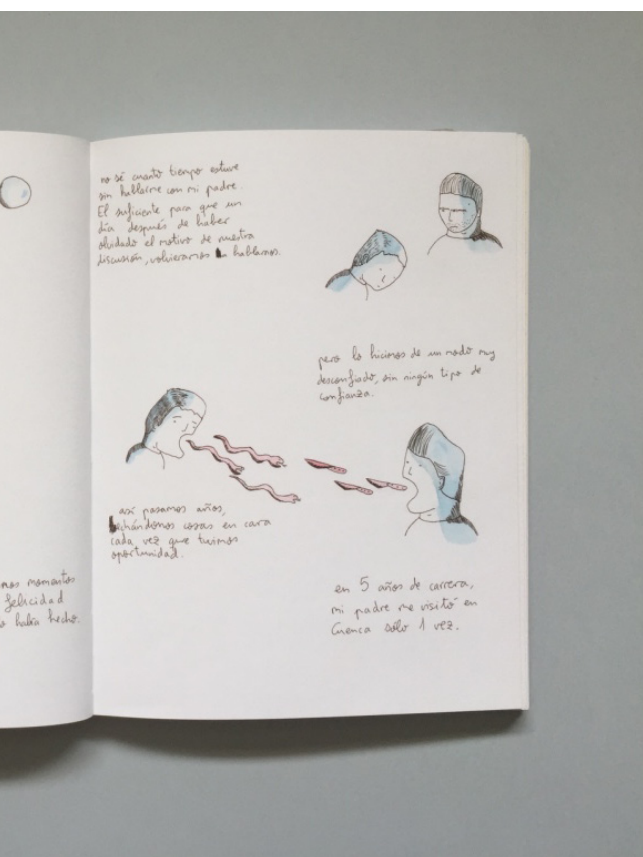 no sé cuanto tiempo estuve
sin hablarme con mi padre.
El suficiente para que un
día después de haber
olvidado el motivo de nuestra
discusión, volvieramos a hablarnos.
pero lo hicimos de un modo muy
desconfiado, sin ningún tipo de
confianza.
así pasamos años,
echándonos cosas en cara
cada vez que tuimos
oportunidad.
en 5 años de carrera,
mi padre me visitó en
Cuenca sólo 1 vez.
momentos
felicidad
había hecho.